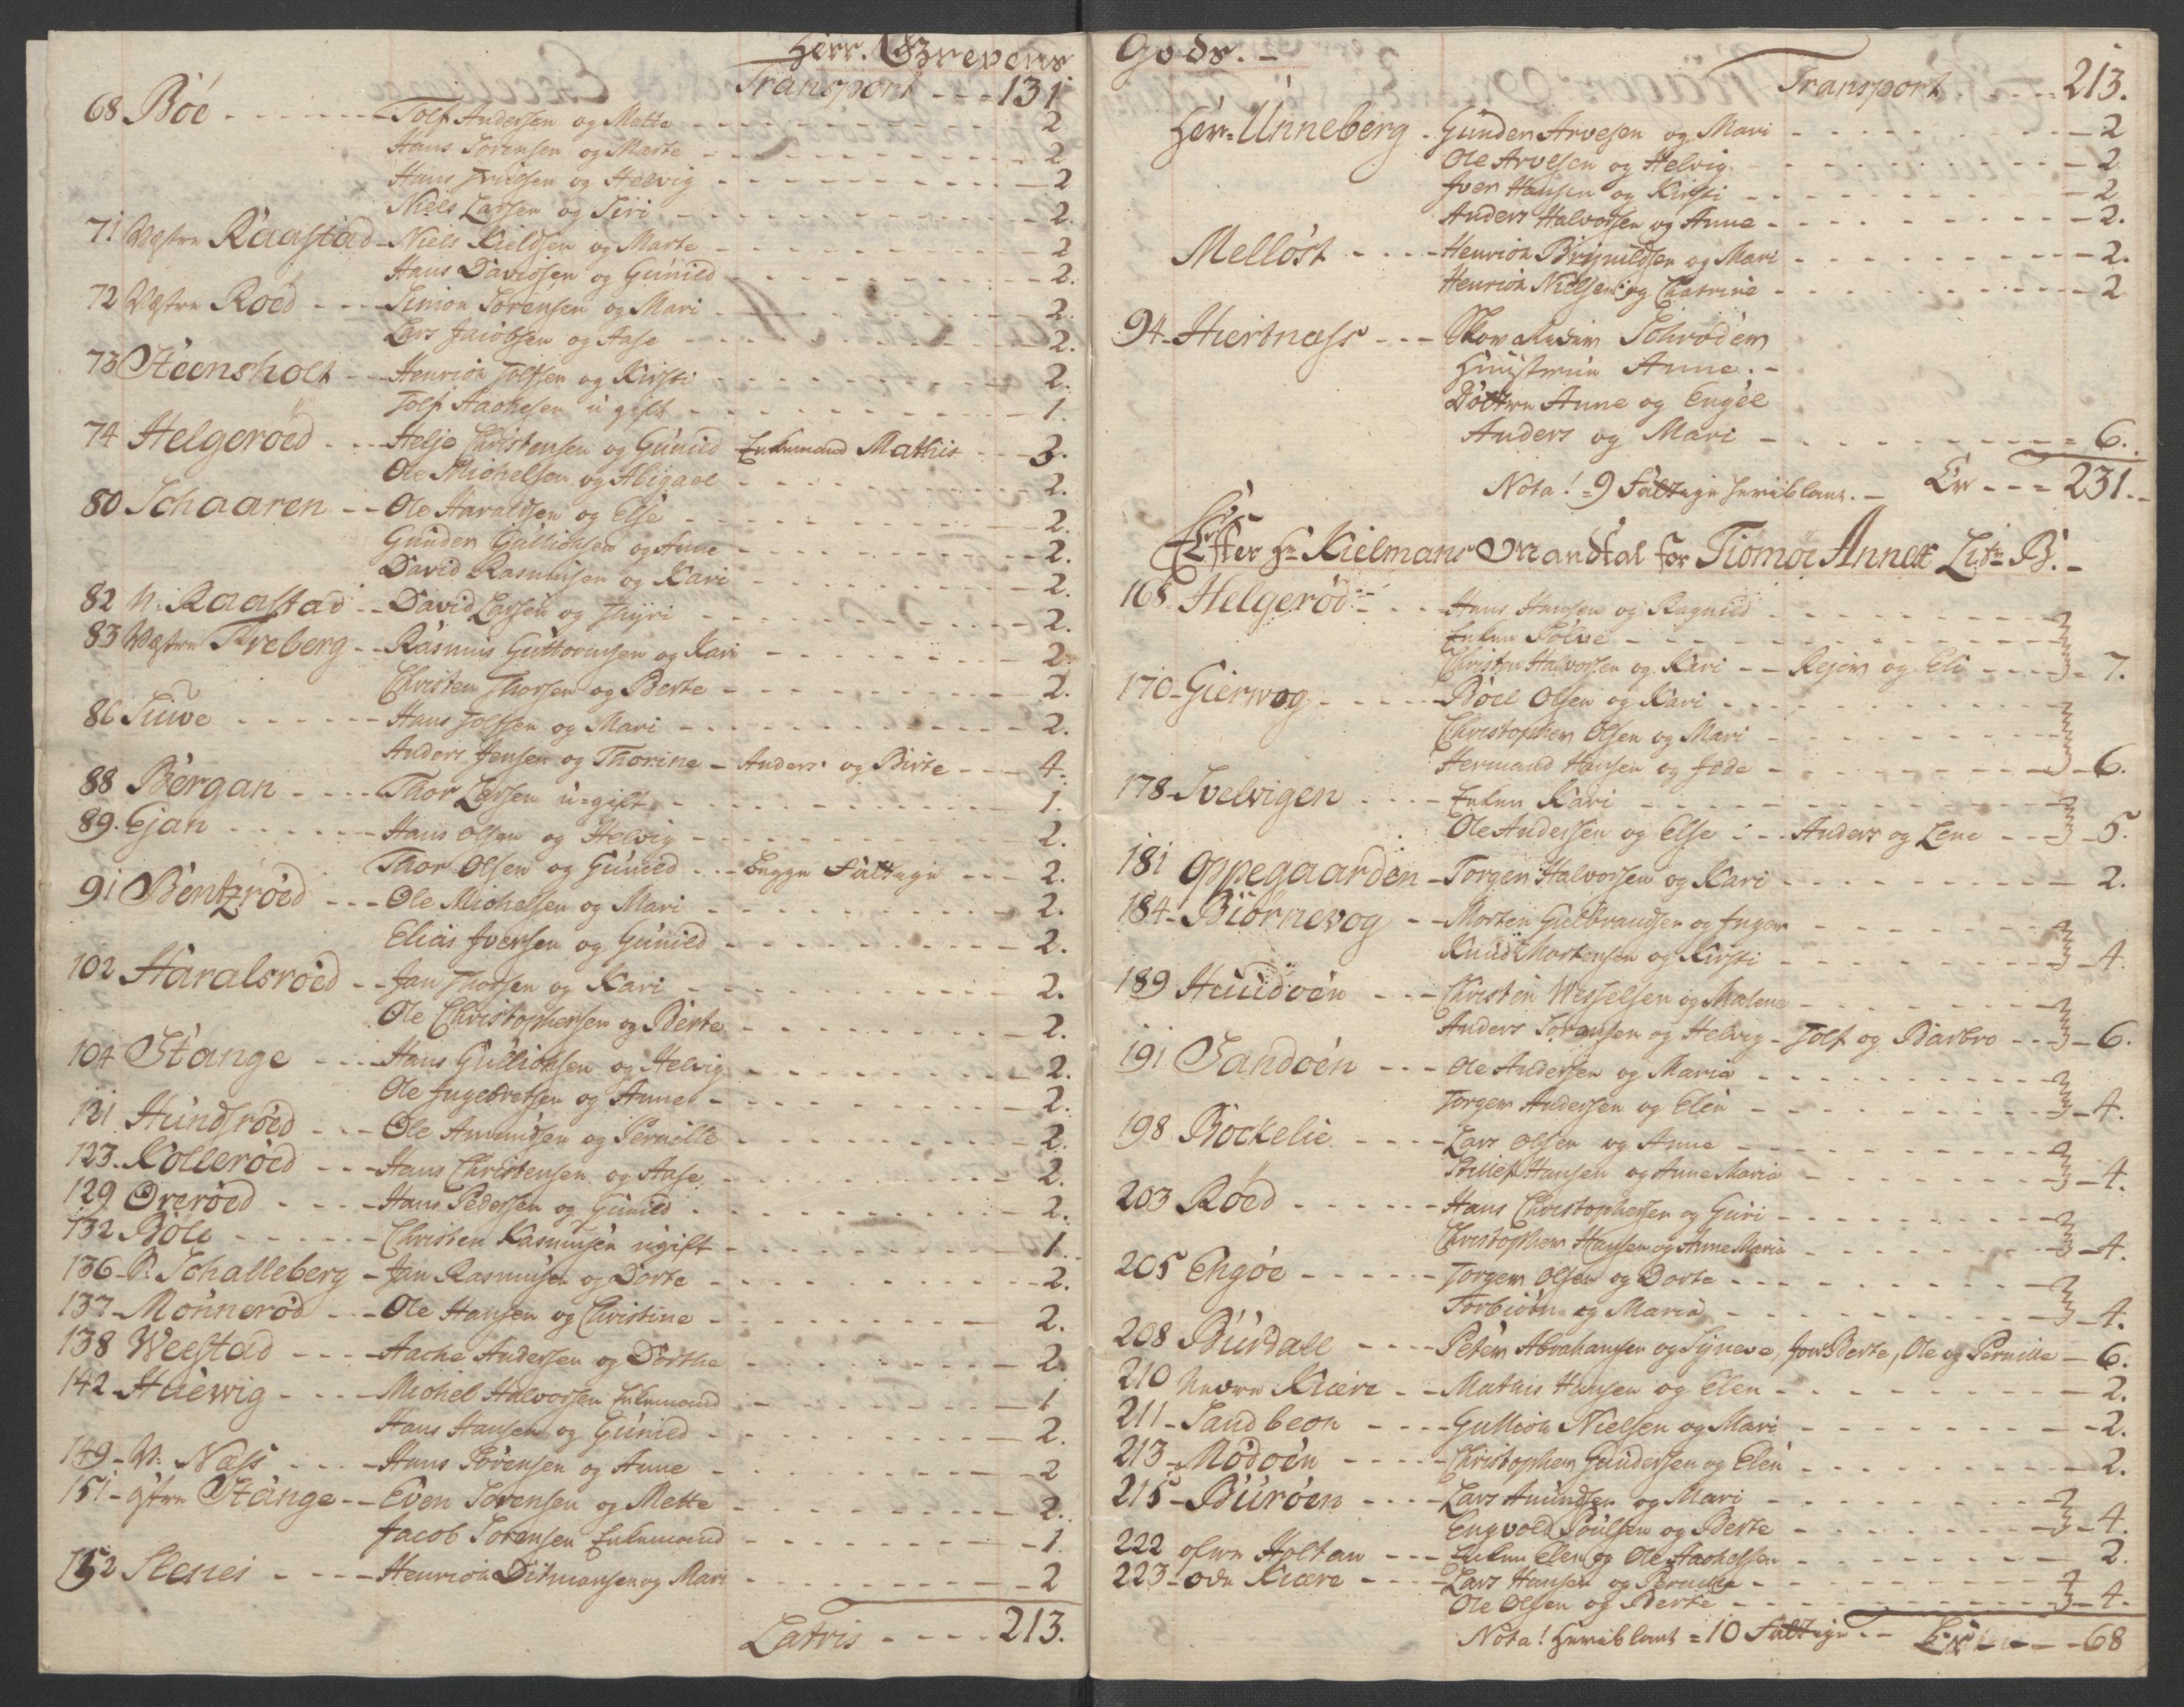 Herr. Grevens
Transport - - - 131
68 Böe - - - Tolf Andersen og Mette - - - 2
Hans Sörensen og Marte - - - 2
Hans og Helvig - - - 2
Niels Larsen og Siri - - - 2.
71 Westre Raastad - Niels Kieldsen og Marte - - - 2
Hans Davidsen og Gunild - - - 2.
72 Westre Roed - - - Simon Sörensen og Mari - - - 2.
Lars Jacobsen og Aase - - - 2.
73 Steensholt - - Henrich Tolfsen og Kirsti - - - 2.
Tolf Aachesen u gift - - - 1.
74 Helgeröed - - - Helje Christensen og Gunild Enkemand Mathis - - - 3.
Ole Michelsen og Abigael - - - 2.
80 Schaaren - - Ole Haraldsen og Else - - - 2.
Gunder Gullichsen og Anne - - - 2.
David Rasmusen og Kari - - - 2.
82 N. Raastad - - David Larsen og Thyri - - - 2.
83 Westre Treberg - - Rasmus Guttormsen og Kari - - - 2.
Christen Thorsen og Berte - - - 2.
86 Tuve - - - Hans Tolfsen og Mari - - - 2.
Anders Jensen og Thorine - Anders og Birte - - - 4.
88 Bergan - - - Thor Larsen u=gift - - - 1.
89. Ejan - - - Hans Olsen og Helvig - - - 2.
Thor Olsen og Gunild - - - begge Fattige - - - 2.
91 Bentzröed - - - Ole Michelsen og Mari - - - 2.
Elias Iversen og Gunild - - - 2.
102 Haralsröed - - Jan Thorsen og Kari - - - 2.
Ole Christophersen og Berte - - - 2.
104 Stange - - - Hans Gullichsen og Helvig - - - 2.
Ole Ingebretsen og Anne - - - 2.
121 Hundsröed - - - Ole Amundsen og Pernille - - - 2.
123. Kolleröed - - - Hans Christensen og Aase - - - 2.
129 Oreröed - - - Hans Pedersen og Gunild - - - 2.
132 Böle - - - Christen Rasmusen ugift - - - 1.
136 - Schalleberg - Jan Rasmusen og Dorte - - - 2.
137 - Monneröd - - - Ole Hansen og Christine - - - 2.
138 Weestad - - - Aache Andersen og Dorthe - - - 2.
142 - Huevig - - - Michel Halvorsen Enkemand - - - 1
Hans Hansen og Gunild - - - 2.
149 - W: Næss - - - Hans Sörensen og Anne - - - 2
151 - östre Stange - - Even Sörensen og Mette - - - 2.
Jacob Sörensen Enkemand - - - 1.
152 Stenes - - - Henrich Ditmansen og Mari - - - 2
Latris - - - 213.
Gods. -
Transport - - - 213.
Her=Unneberg - Gunder Arvesen og Mari - - - 2
Ole Arvesen og Helvig - - - 2
Iver Hansen og Kirsti - - - 2
Anders Halvorsen og Anne - - - 2.
Melløst - - - Henrich Brynildsen og Mari - - - 2.
Henrich Nielsen og Chatrine - - - 2
94 - Hiertnæss - - - Schröder
Huustrue Anne. -
Döttre Anne og Engel
Anders og Mari - - - 6.
Nota! = 9 Fattige heriblant. - Er - - - 231. -
Efter Hr Kielmans Mandtal for Tiömöe Annex Litr B. -
168 - Helgeröd - - - Hans Hansen og Ragnild - - -
Enken Tolve - - -
Christen Halvorsen og Kari - - Rejer og Eli - - - 7.
170 - Gierwog - - - Böel Olsen og Kari - - -
Christopher Olsen og Mari - - -
Hermand Hansen og Jede - - - 6.
178 - Svelvigen - - - Enken Kari - - -
Ole Andersen og Else - - - Anders og Lene - - - 5.
181 Oppegaarden - Torger Halvorsen og Kari - - - 2.
184 - Biörnevog - - Morten Gulbrandsen og Inger - - -
Knud Mortensen og Kirsti - - - 4.
189 Hundöen - - - Christen Wesselsen og Malene - - -
Anders Sörensen og Helvig - Tolf og Barbro - - - 6.
191 Sandöen - - - Ole Andersen og Maria - - -
Torger Andersen og Elen - - - 4.
198 Bockelie - - - Lars Olsen og Anne - - -
Hansen og Anne Maria - - - 4.
203 Röed - - - Hans Christophersen og Guri - - -
Christopher Hansen og Anne Maria - - - 4.
205 Engöe - - - Torger Olsen og Dorte - - -
Torbiörn og Maria - - - 4.
208 Burdall - - - Peter Abrahamsen og Syneve, Jon Berte, Ole og Pernille - 6.
210 Nedre Kiære - - Mathis Hansen og Elen - - - 2.
211 - Sandbech - - - Gullich Nielsen og Mari - - - 2.
213 - Mödöen - - - Christopher Gundersen og Elen - - - 2.
215 - Buröen - - - Lars Amundsen og Mari - - -
Engvold Poulsen og Berte - - - 4.
222 ofre Holtan - - - Enken Elen og Ole Aachelsen - - - 2.
223 - Kiære - - - Lars Hansen og Pernille - - -
Ole Olsen og Berte - - - 4.
Nota! heriblant = 10 Fattige - - Er - - - 68